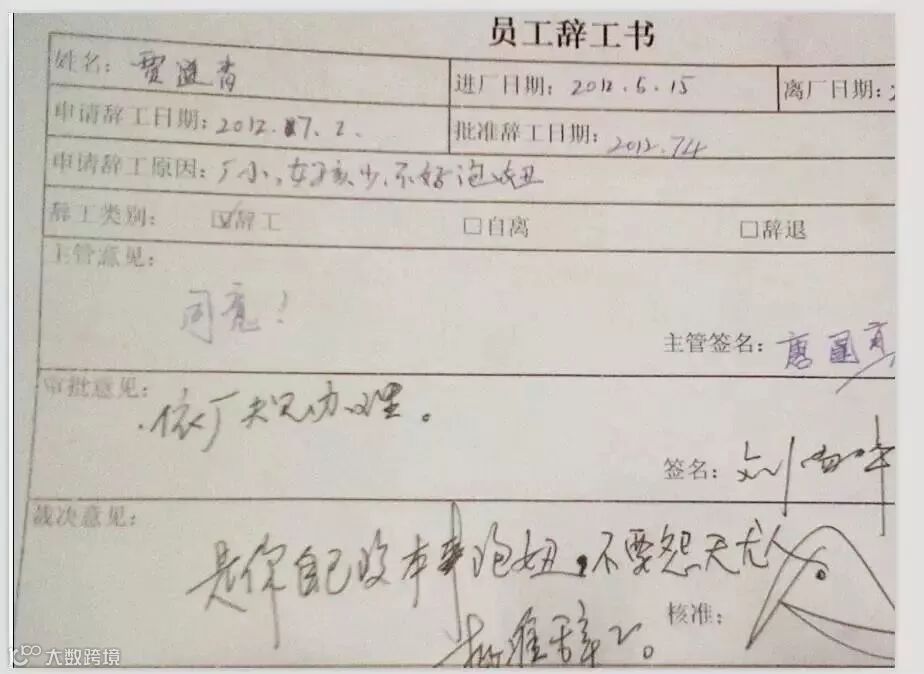 员工辞工书
姓名: 贾 进厂日期: 2012.6.15 离厂日期:
申请辞工日期: 2012.7.2. 批准辞工日期: 2012.7.4
申请辞工原因: 厂小,女孩少,不好泡妞
辞工类别: ☑辞工 □自离 □辞退
主管意见:
同意!
主管签名: 唐国
审批意见:
依厂规办理。
签名: 刘
裁决意见:
是你自己没本事泡妞,不要怨天尤人。
核准:
批准辞工。
大数跨境